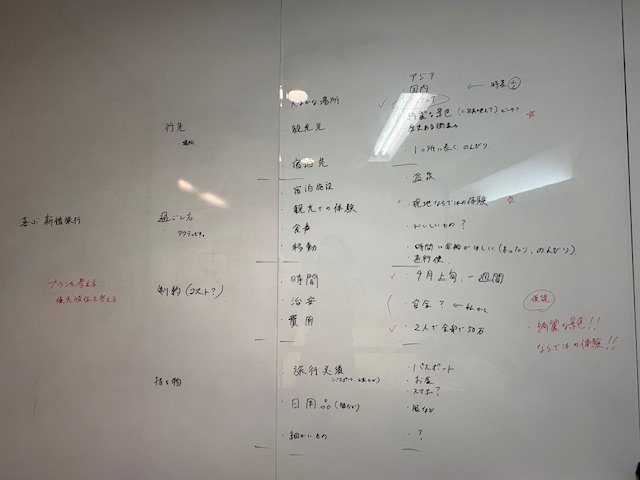 ・アジア
・国内
大まかな場所
← 時差
綺麗な景色
行先
場所
・観光先
・1ヶ所に長く、のんびり
宿泊先
・宿泊施設
・温泉
・観光での体験
・現地ならではの体験
喜ぶ新婚旅行
過ごし方
アクティビティ
・食事
・おいしいもの?
・移動
・時間に余裕がほしい(まったり、のんびり)
・直行便
プランを考える
優先順位は考える
制約(コスト?)
・時間
・9月上旬、一週間
・治安
・安全? ←
・費用
・2人で全部で50万
仮説
・綺麗な景色!!
ならではの体験!!
持ち物
・旅行必須
・パスポート
・お金
・日用品
・服など
・細かいもの
・?